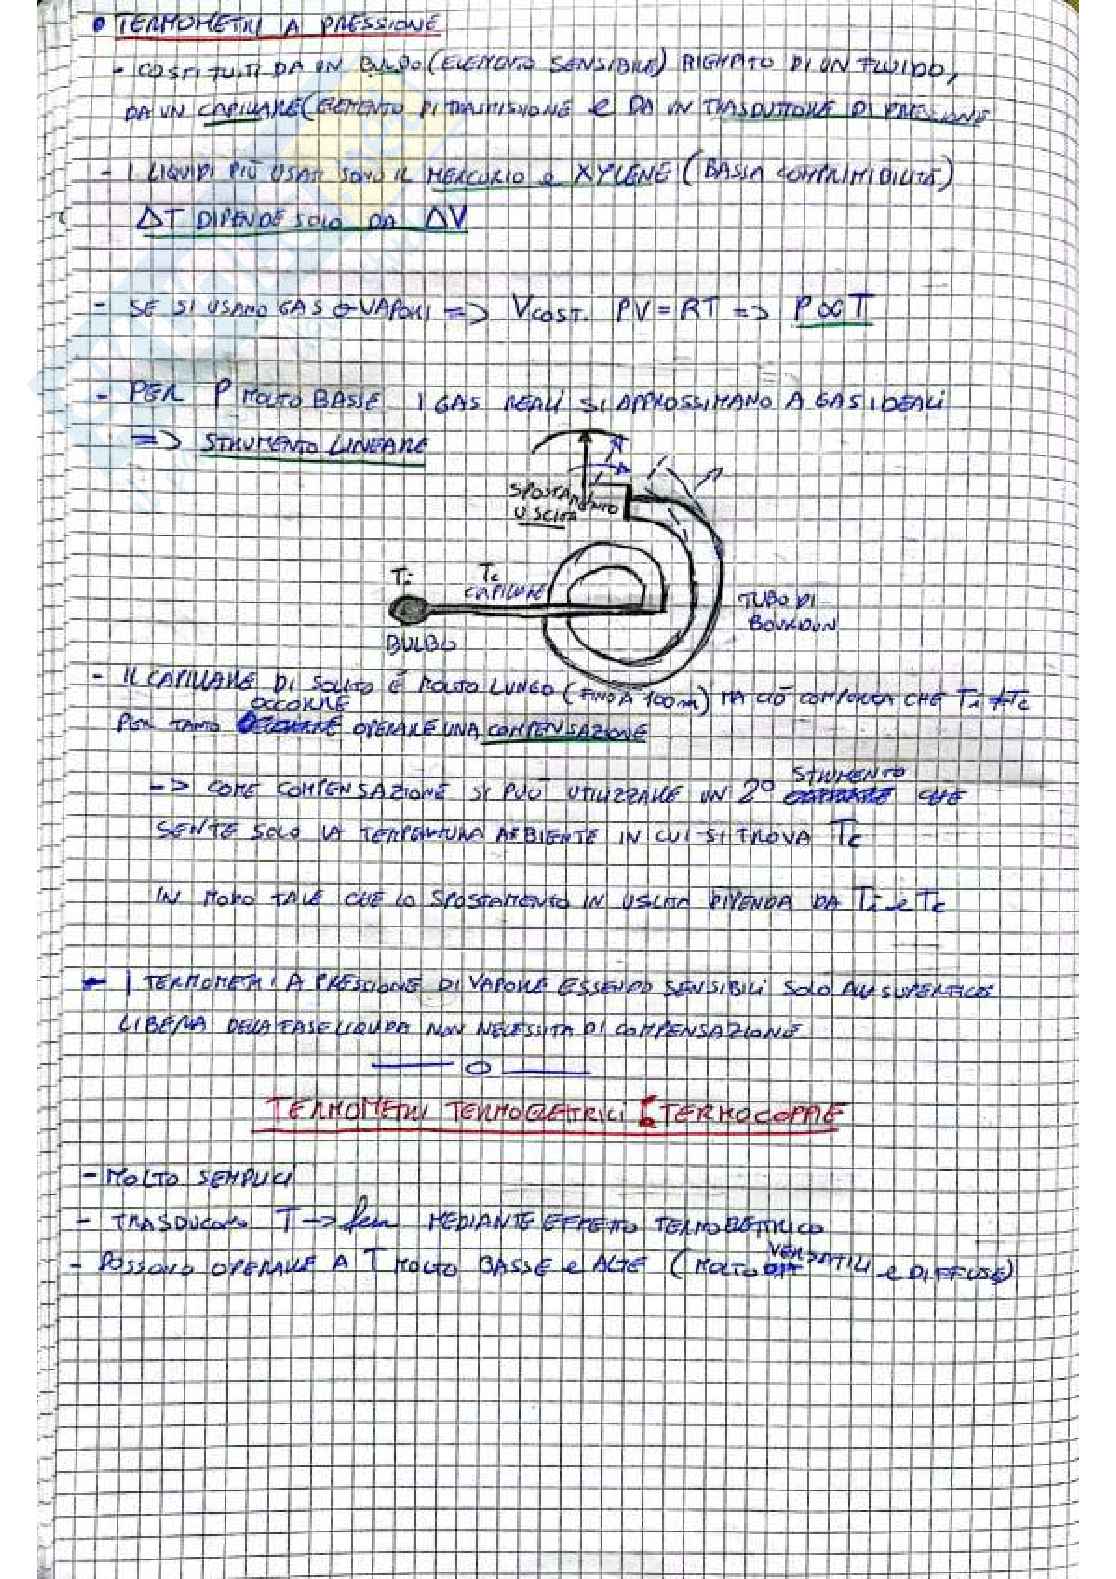 • TERMOMETRI A PRESSIONE
- COSTITUITI DA UN BULBO (ELEMENTO SENSIBILE) RIEMPITO DI UN FLUIDO,
DA UN CAPILLARE (ELEMENTO DI TRASMISSIONE e DA UN TRASDUTTORE DI PRESSIONE
- I LIQUIDI PIÙ USATI SONO IL MERCURIO e XYLENE (BASSA COMPRIMIBILITÀ)
ΔT DIPENDE SOLO DA ΔV
- SE SI USANO GAS o VAPORI => V COST. PV = RT => P ∝ T
- PER P MOLTO BASSE I GAS REALI SI APPROSSIMANO A GAS IDEALI
=> STRUMENTO LINEARE
SPOSTAMENTO
USCITA
Ti
Tc
CAPILLARE
TUBO DI
BOURDON
BULBO
- IL CAPILLARE DI SOLITO È MOLTO LUNGO (FINO A 100m) MA CIÒ COMPORTA CHE Ti ≠ Tc
OCCORRE
PER TANTO OPERARE UNA COMPENSAZIONE
STRUMENTO
-> COME COMPENSAZIONE SI PUÒ UTILIZZARE UN 2° CHE
SENTE SOLO LA TEMPERATURA AMBIENTE IN CUI SI TROVA Tc
IN MODO TALE CHE LO SPOSTAMENTO IN USCITA DIPENDA DA Ti e Tc
- I TERMOMETRI A PRESSIONE DI VAPORE ESSENDO SENSIBILI SOLO ALLA SUPERFICIE
LIBERA DELLA FASE LIQUIDA NON NECESSITA DI COMPENSAZIONE
TERMOMETRI TERMOELETTRICI TERMOCOPPIE
- MOLTO SEMPLICI
- TRASDUCONO T -> fem MEDIANTE EFFETTO TERMOELETTRICO
- POSSONO OPERARE A T MOLTO BASSE e ALTE (MOLTO VERSATILI e DIFFUSE)